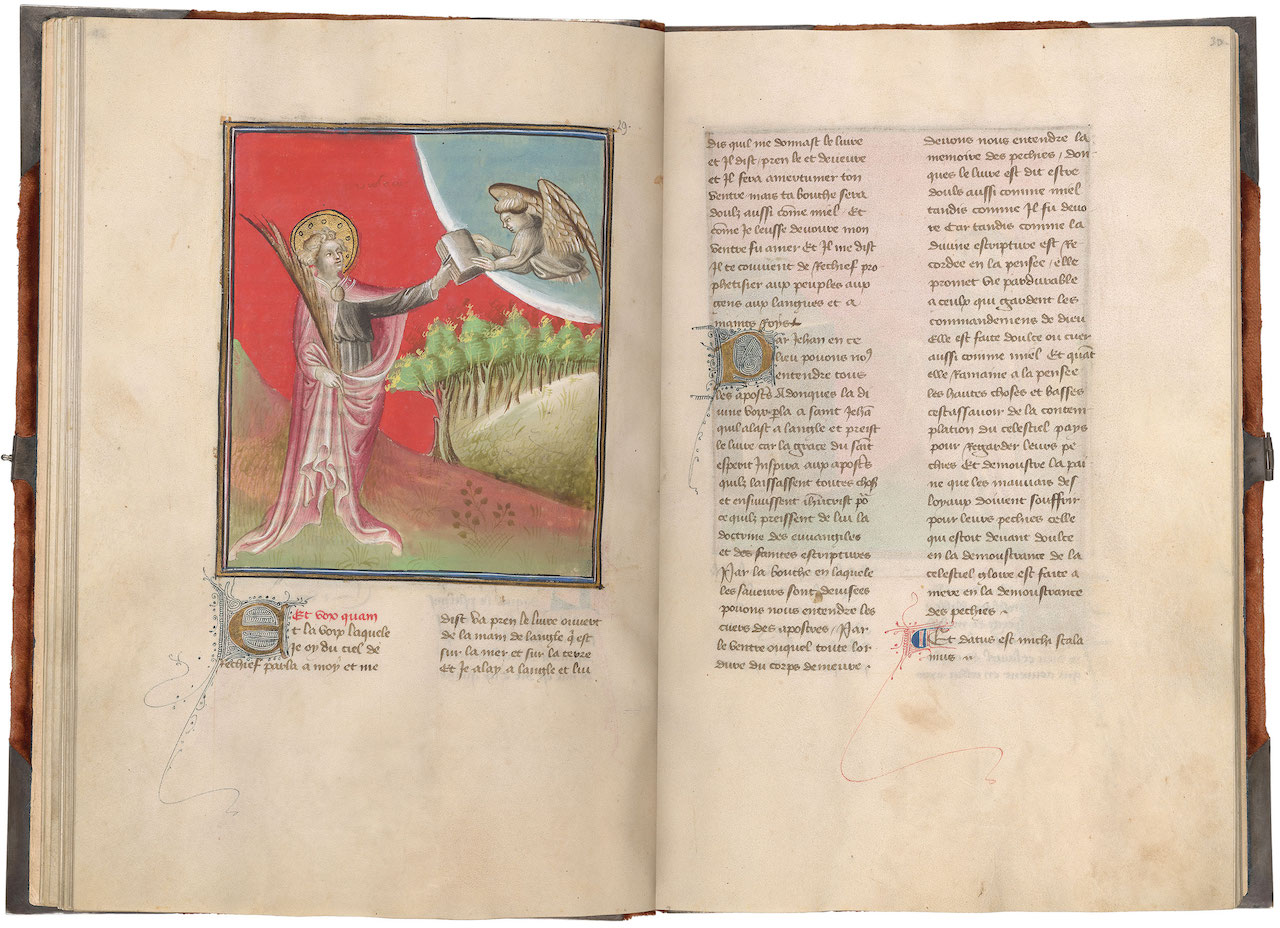 29.
Et vox quam
Et la voix laquele
Je oy du ciel de
rechief parla a moy et me
dist va pren le livre ouvert
de la main de langle q̃ est
sur la mer et sur la terre
Et Je alay a langle et lui
30
dis quil me donnast le livre
et Il dist / pren le et deveure
et Il fera amertumer ton
ventre / mais ta bouche sera
doulz aussi cõme miel / Et
cõme Je leusse devoure mon
ventre fu amer Et Il me dist
Il te couvient de Rechief pro
phetisier aux peuples aux
gens aux langues et a
maints Roys
Par Jehan en ce
lieu povons no9
entendre tous
les apostrs Adonques la di
vine voix pla a saint Jehã
quil alast a langle et preist
le livre car la grace du sait
esperit Inspira aux apostrs
quilz laissassent toutes chos
et ensuivissent ih̃ucrist põ
ce quilz preissent de lui la
doctrine des euvangiles
et des saintes escriptures
Par la bouche en laquele
les saveurs sont devisees
povons nous entendre les
cuers des apostres / Par
le ventre ouquel toute lor
dure du corps demeure .
devons nous entendre la
memoire des pechies / don
ques le livre est dit estre
doulz aussi comme miel
tandis comme Il fu devo
re Car tandis comme la
divine escripture est Re
cordee en la pensee / elle
promet vie pardurable
a ceulx qui gardent les
commandemens de dieu
Elle est faite doulce ou cuer
aussi comme miel Et quãt
elle Ramaine a la pensee
les haultes choses et basses
cestassavoir de la contem
plation du celestiel pays
pour Regarder leurs pe
chies Et demoustre la pai
ne que les mauvais des
loyaux doivent souffrir
pour leurs pechies celle
qui estoit devant doulce
en la demoustrance de la
celestiel gloire est faite a
mere en la demoustrance
des pechies .
Et datus est michi cala
mus .